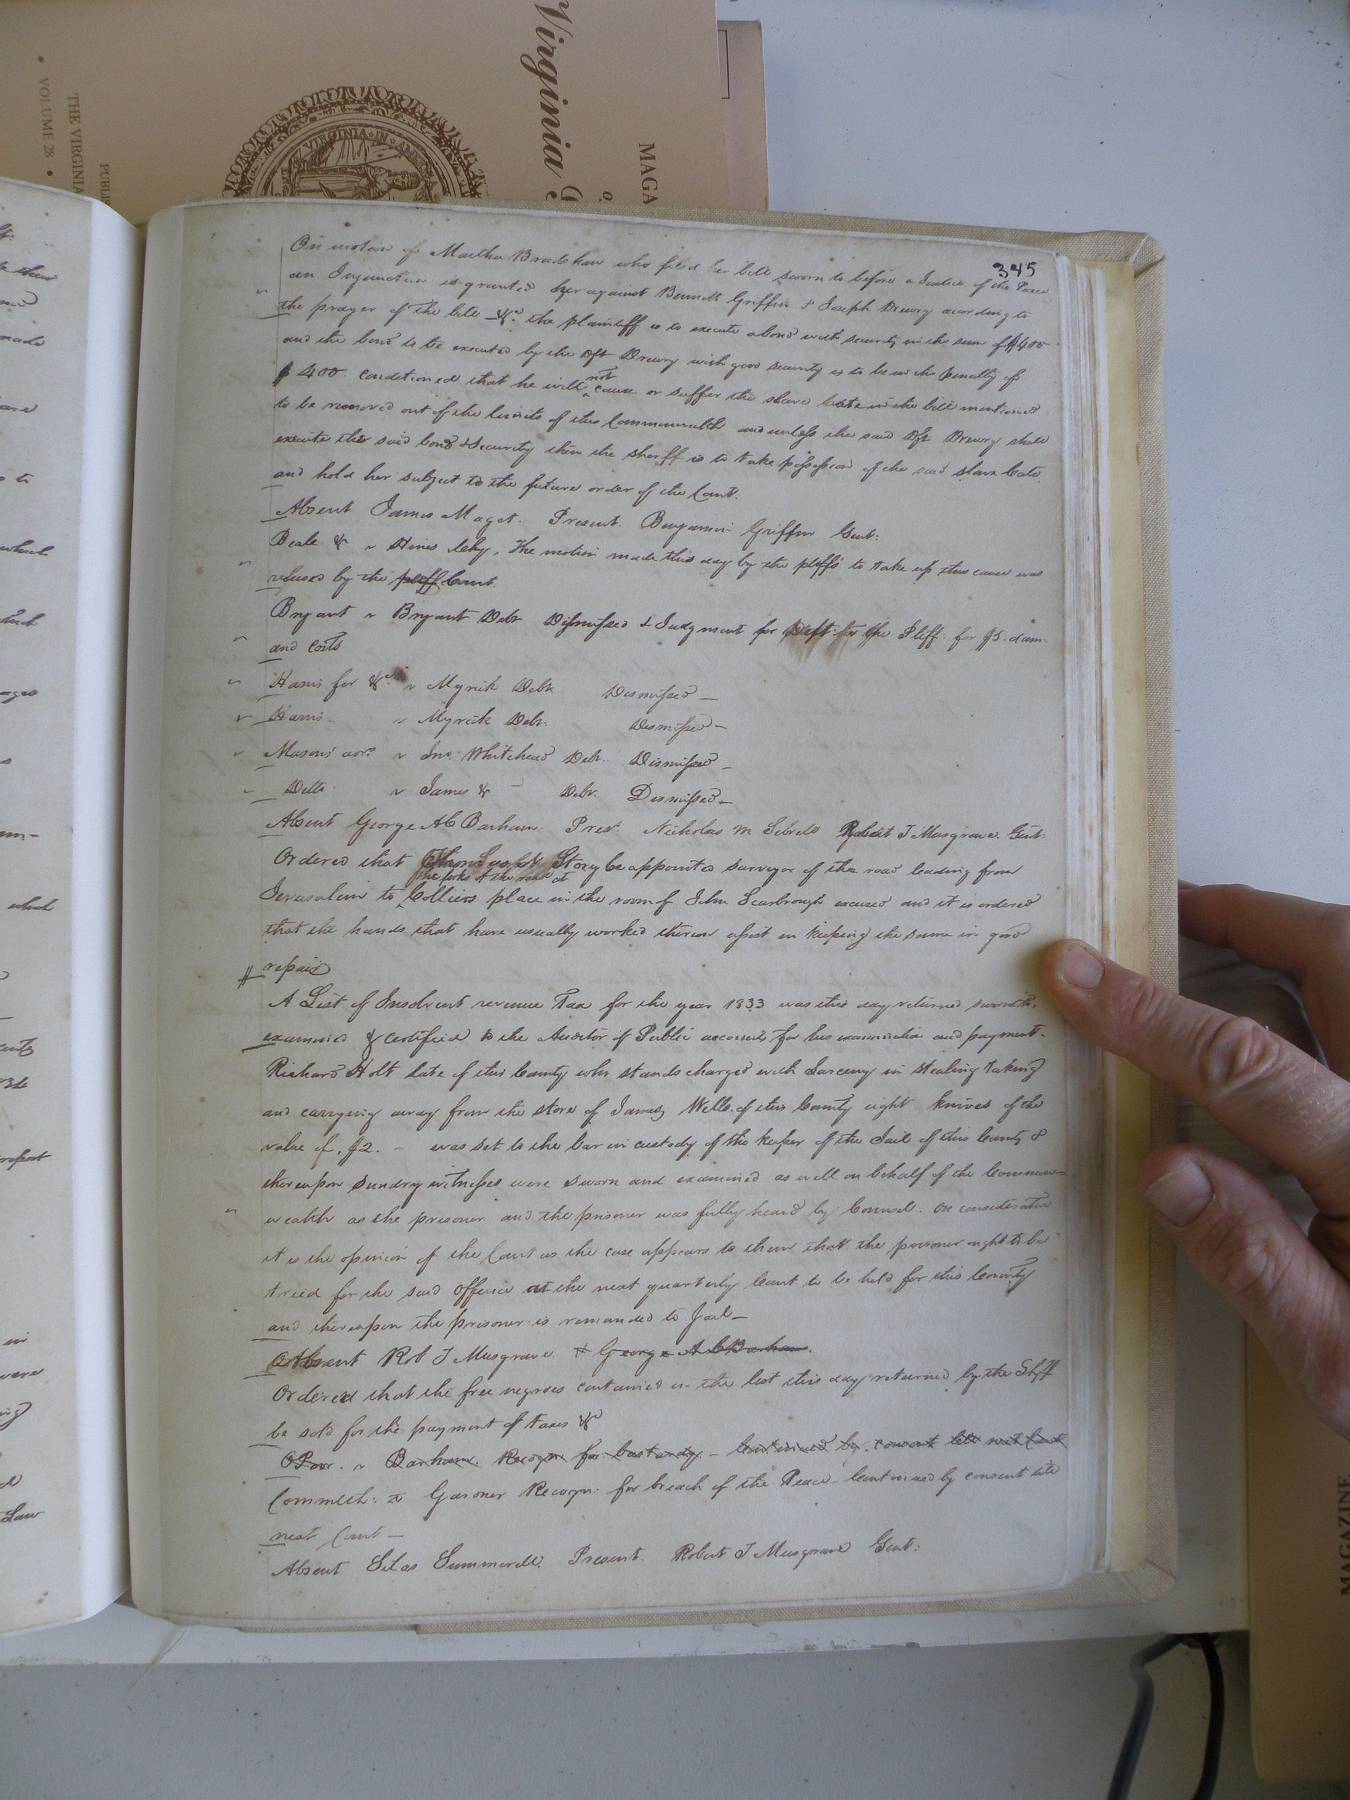 Virginia
MAGA
THE VIRGINIA
VOLUME 28
PUBLI
VIRGINIA IN
345
On motion of Martha Bradshaw who filed her bill sworn to before a Justice of the Peace
an Injunction is granted her against Bennett Griffin & Joseph Drewry according to
the prayer of the bill &c. the plaintiff is to execute a bond with security in the sum of $400
and the bond to be executed by the Dft Drewry with good security is to be in the penalty of
$400. conditioned that he will not cause or suffer the slave Cate in the bill mentioned
to be removed out of the limits of this Commonwealth and unless the said Dft Drewry shall
execute the said bond & Security then the sheriff is to take possession of the said slave Cate
and hold her subject to the future order of the Court.
Absent James Maget. Present. Benjamin Griffin Gent:
Beale & v Hines The motion made this day by the plffs to take up this cause was
refused by the plff Court.
Bryant v Bryant Debt Dismissed & Judgment for Deft the Pliff. for $5. dam.
and costs
Harris for &c v Myrick Debt Dismissed —
Harris v Myrick Debt. Dismissed —
Masons v Jno. Whitehead Debt. Dismissed —
v James & Debt. Dismissed —
Absent George A C Barham. Prest. Nicholas M Sebrell Robert T Musgrave. Gent.
Ordered that Story be appointed surveyor of the road leading from
the forks of the road at
Jerusalem to Colliers place in the room of John Scarbrough excused and it is ordered
that the hands that have usually worked thereon assist in keeping the same in good
repair
A List of Insolvent revenue Tax for the year 1833 was this day returned
examined & certified to the Auditor of Public accounts for his examination and payment.
Richard Holt late of this County who stands charged with Larceny in stealing taking
and carrying away from the store of James Wells of this County eight knives of the
value of $2. — was set to the bar in custody of the keeper of the Jail of this County &
thereupon sundry witnesses were sworn and examined as well on behalf of the Common-
wealth as the prisoner and the prisoner was fully heard by Counsel. On consideration
it is the opinion of the Court as the case appears to them that the prisoner ought to be
tried for the said offence at the next quarterly Court to be held for this County
and thereupon the prisoner is remanded to Jail —
Absent Rob T Musgrave & George A C Barham.
Ordered that the free negroes contained in the list this day returned by the Shff
be sold for the payment of taxes &c
v Barham. Recogn for bastardy — Continued by consent till next Court
Commlth: v Gardner Recogn: for breach of the Peace Continued by consent till
next Court —
Absent Silas Summerell. Present. Robert T Musgrave Gent:
MAGAZINE